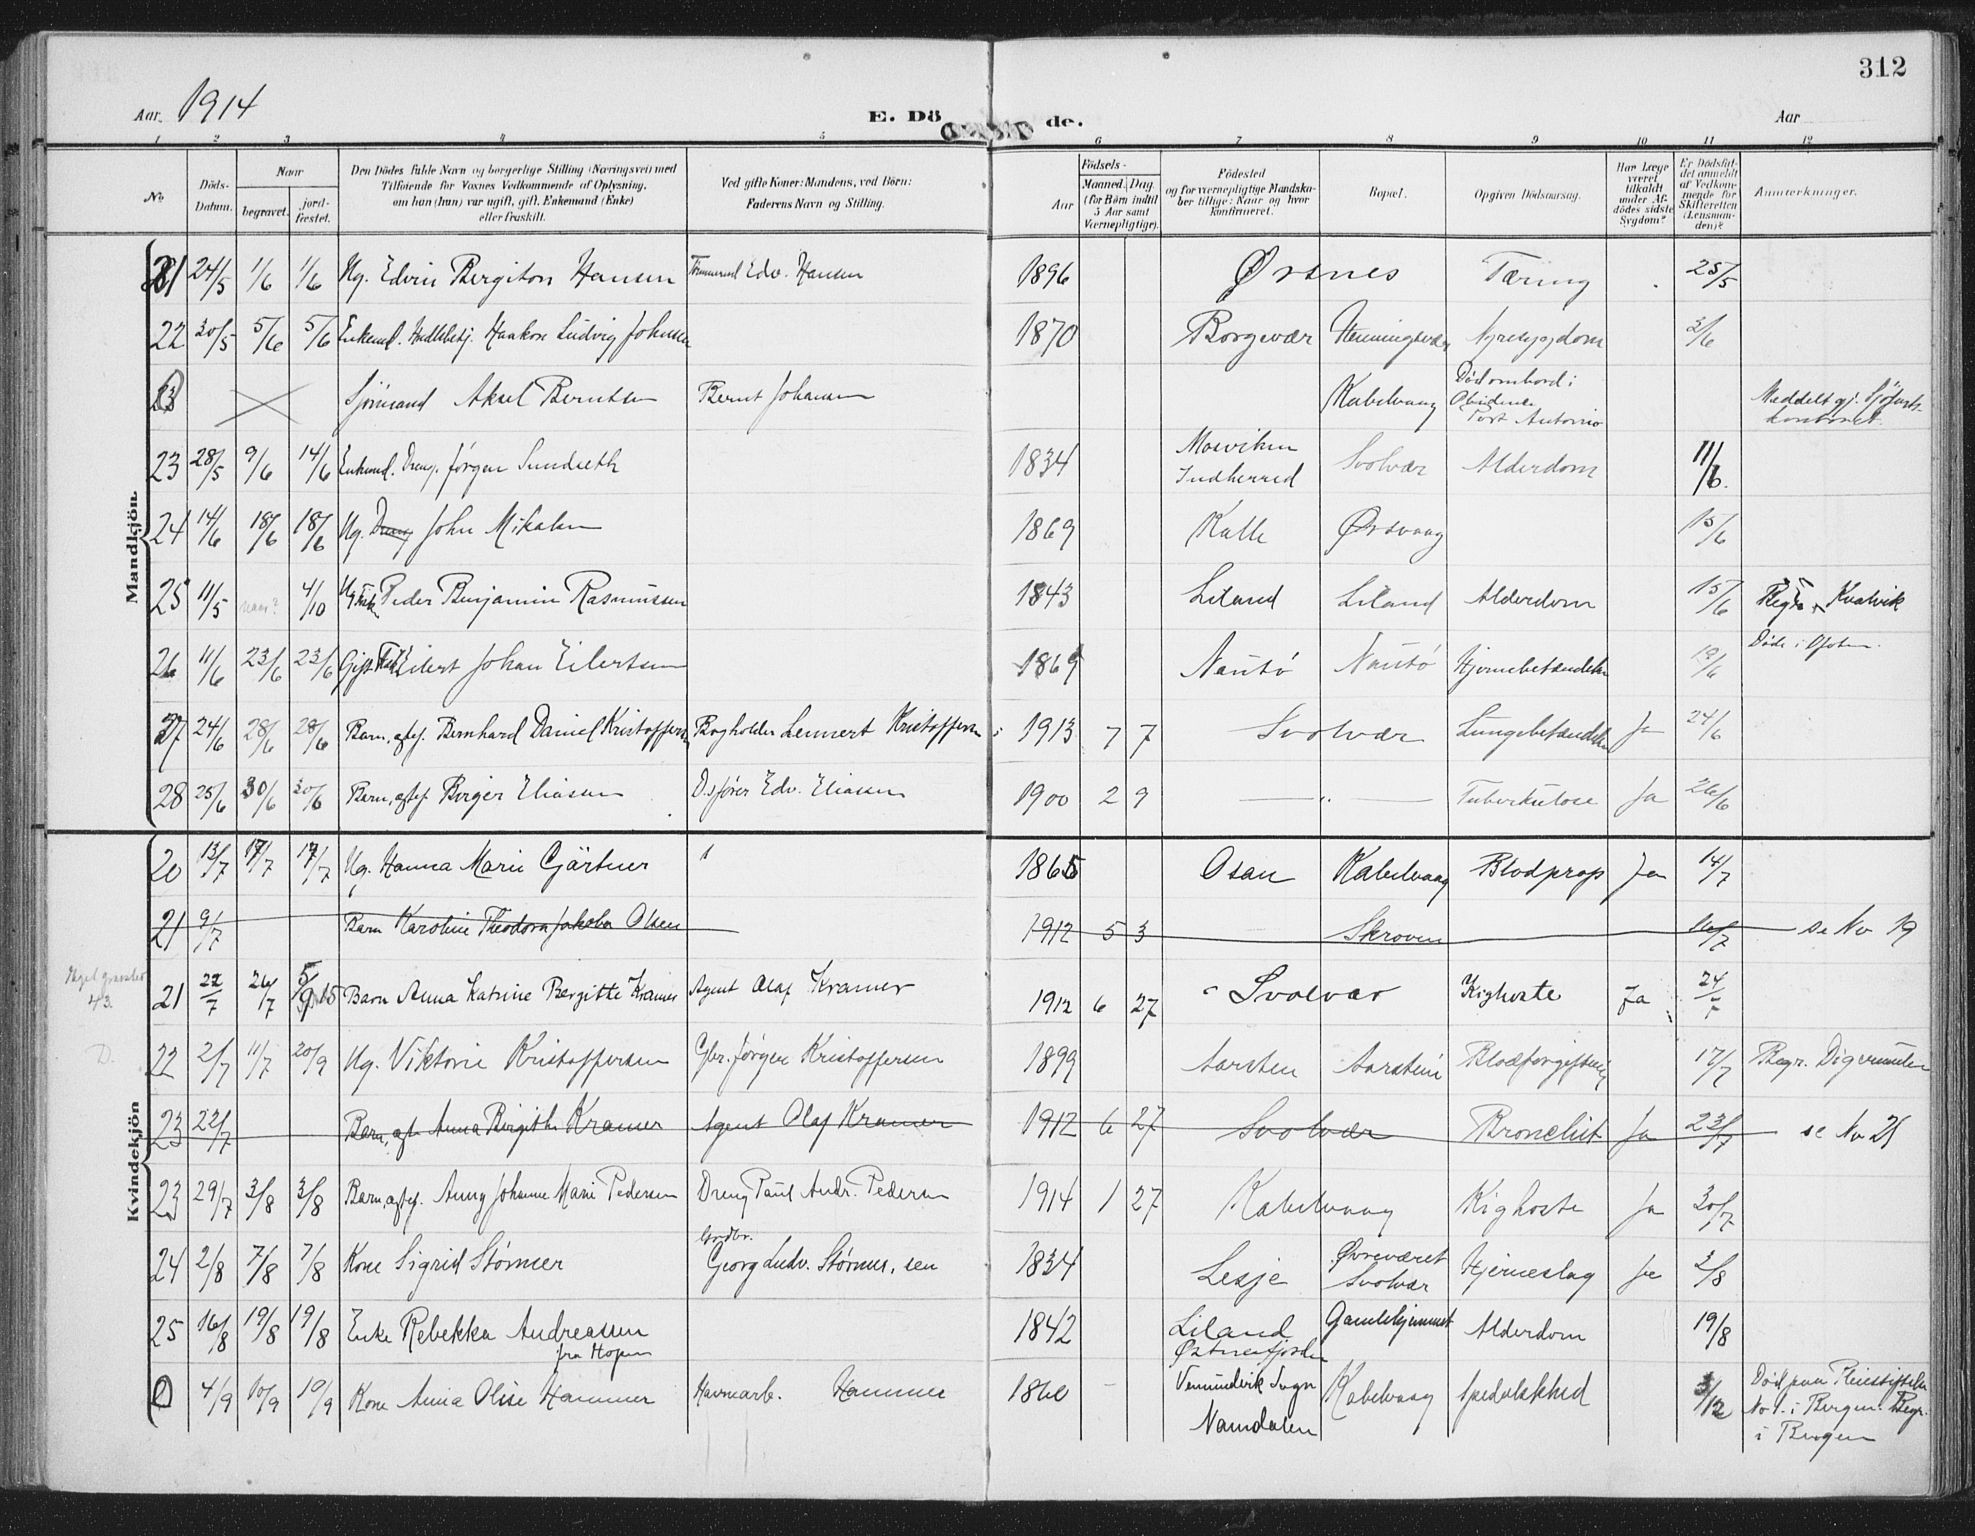 312
Aar 1914
E. Dö de.
Aar
1 2 3 4 5 6 7 8 9 10 11 12
No.
Döds-Datum.
Naar
begravet.
jord-fæstet.
Den Dödes fulde Navn og borgerlige Stilling (Næringsvei) med
Tilföiende for Voxnes Vedkommende af Oplysning,
om han (hun) var ugift, gift, Enkemand (Enke)
eller fraskilt.
Ved gifte Koner: Mandens, ved Börn:
Faderens Navn og Stilling.
Födsels-
Aar
Maaned. Dag
(for Börn indtil
5 Aar samt
Værnepligtige).
Födested
og for værnepligtige Mandska-
ber tillige: Naar og hvor
konfirmeret.
Bopæl.
Opgiven Dödsaarsag.
Har Læge
været
tilkaldt
under Af-
dödes sidste
Sygdom?
Er Dödsfal-
det anmeldt
af Vedkom-
mende for
Skifteretten
(Lensman-
den)?
Anmærkninger.
Mandkjön.
21 24/5 1/6 1/6 Ug. Edvin Bergiton Hansen Edv. Hansen 1896 Ørsnes Tæring 25/5
22 30/5 5/6 5/6 Enkemd. Haakon Ludvig Johnsen 1870 Borgevær Henningsvær Nyresygdom 3/6
Sjömand Aksel Berntsen Bernt Johansen Kabelvaag Död ombord i
Port Antonio Meddelt gj. Sjöfarts-
kontoret.
23 28/5 9/6 14/6 Enkemd. Jørgen Sundseth 1834 Mosviken
Indherred Svolvær Alderdom 11/6.
24 14/6 18/6 18/6 Ug. John Mikalsen 1869 Kalle Ørsvaag 15/6
25 11/5 naar? 4/10 Peder Benjamin Rasmussen 1843 Liland Liland Alderdom 15/6 Kvalvik
26 11/6 23/6 23/6 Gift Eilert Johan Eilertsen 1869 Nautö Nautö Hjernebetændelse 19/6 Døde i Ofoten.
27 24/6 28/6 28/6 Barn, Bernhard Daniel Kristoffersen Bogholder Lennert Kristoffersen 1913 7 7 Svolvær Lungebetændelse Ja 24/6
28 25/6 30/6 30/6 Barn, Birger Eliasen D.sfører Edv. Eliasen 1900 2 9 — „ — Tuberkulose Ja 26/6
Kvindekjön
20 13/7 17/7 17/7 Ug. Hanna Marie Gjärtner 1865 Osan Kabelvaag Blodprop Ja 14/7
21 9/7 Barn Karoline Theodora Jakoba Olsen 1912 5 3 Skroven 10/7 se No 19
21 22/7 26/7 5/9 15 Barn Anna Katrine Bergitte Kramer Agent Olaf Kramer 1912 6 27 Svolvær Kighoste Ja 24/7
22 2/7 11/7 20/9 Ug. Viktorie Kristoffersen Gbr. Jørgen Kristoffersen 1899 Aarsten Aarstein Blodforgiftning 17/7 Begr. Digermulen
23 22/7 Barn, Anna Birgithe Kramer Agent Olaf Kramer 1912 6 27 Svolvær Bronchit Ja 23/7 se No 21
23 29/7 3/8 3/8 Barn, Anny Johanne Marie Pedersen Dreng Paul Andr. Pedersen 1914 1 27 Kabelvaag Kighoste Ja 30/7
24 2/8 7/8 7/8 Kone Sigrid Störmer Gordbr.
Georg Ludv. Störmer, sen 1834 Lesje Øvreværet
Svolvær Hjerneslag Ja 3/8
25 16/8 19/8 19/8 Enke Rebekka Andreassen
fra Hopen 1842 Liland
Østnesfjorden Gamlehjemmet Alderdom 19/8
4/9 10/9 10/9 Kone Anna Olise Hammer Havnearb. Hammer 1860 Vemundvik Sogn
Namdalen Kabelvaag Spedalskhed 3/12 Död paa Pleiestiftelse
No 1. i Bergen. Begr.
i Bergen